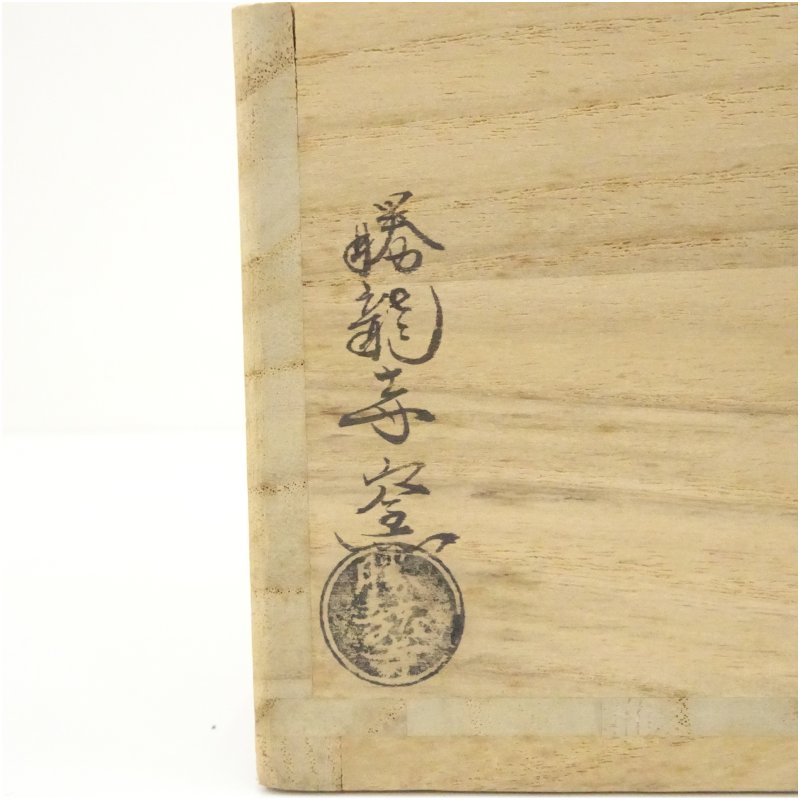 勝龍寺窯